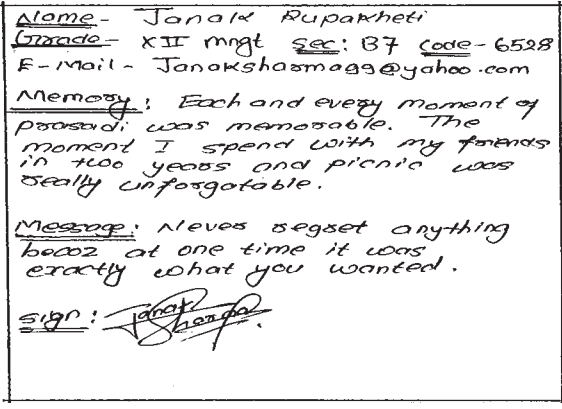 Name - Janak Rupakheti
Grade - XII mngt sec: B7 code - 6528
E-mail - Janaksharma99@yahoo.com
Memory: Each and every moment of
prasadi was memorable. The
moment I spend with my friends
in two years and picnic was
really unforgatable.
Message: Never regret anything
becoz at one time it was
exactly what you wanted.
sign: Janak
Sharma